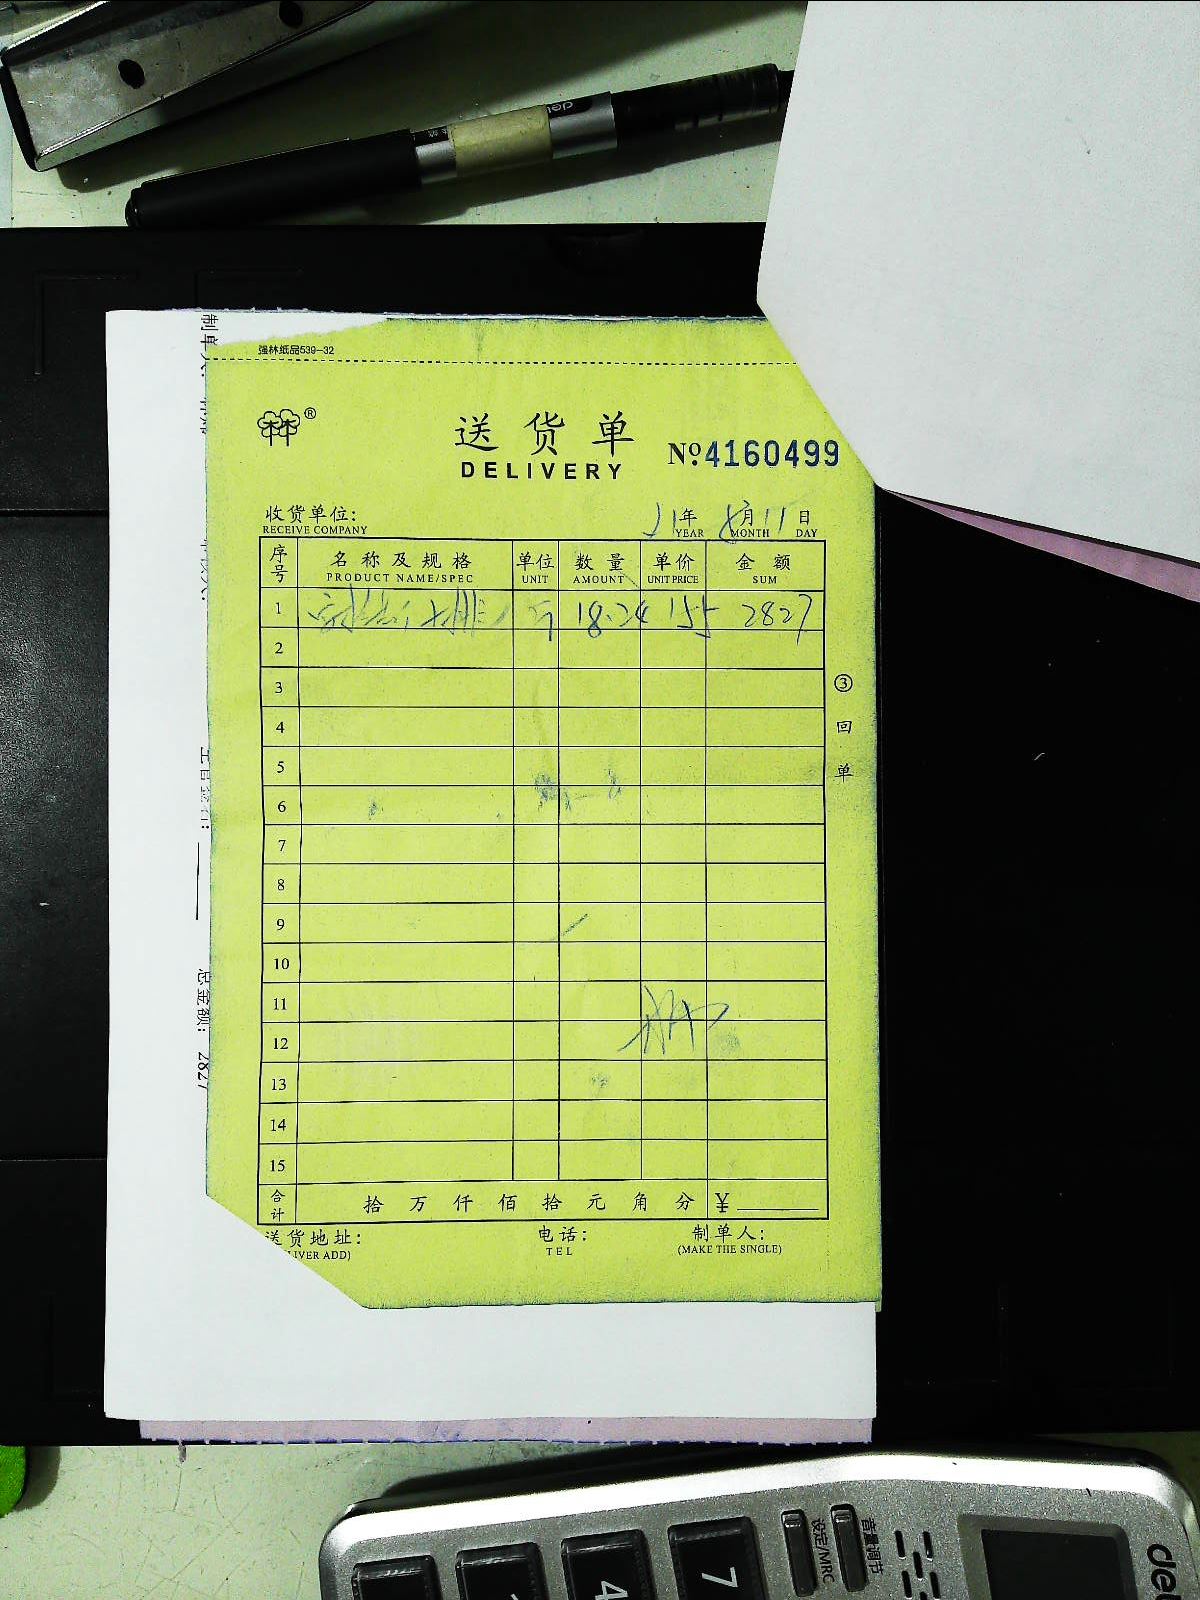 强林纸品539-32
林林®
送货单
DELIVERY
№4160499
收货单位:
RECEIVE COMPANY
21年 8月11日
YEAR MONTH DAY
序号 名称及规格 单位 数量 单价 金额
PRODUCT NAME/SPEC UNIT AMOUNT UNIT PRICE SUM
1 18.24 155 2827
2
3
4
5
6
7
8
9
10
11
12
13
14
15
③回单
合计 拾万仟佰拾元角分 ¥
送货地址: 电话: 制单人:
LIVER ADD) TEL (MAKE THE SINGLE)
总金额: 2827
deli
音量调节
设定/MRC
7
4